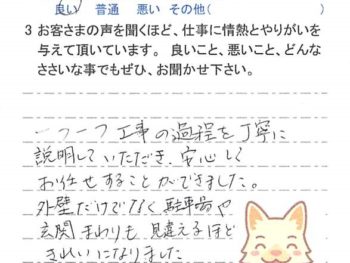 良い 普通 悪い その他( )
3 お客さまの声を聞くほど、仕事に情熱とやりがいを
与えて頂いています。 良いこと、悪いこと、どんな
ささいな事でもぜひ、お聞かせ下さい。
一つ一つ工事の過程を丁寧に
説明していただき、安心して
お任せすることができました。
外壁だけでなく駐車場や
玄関まわりも見違えるほど
きれいになりました